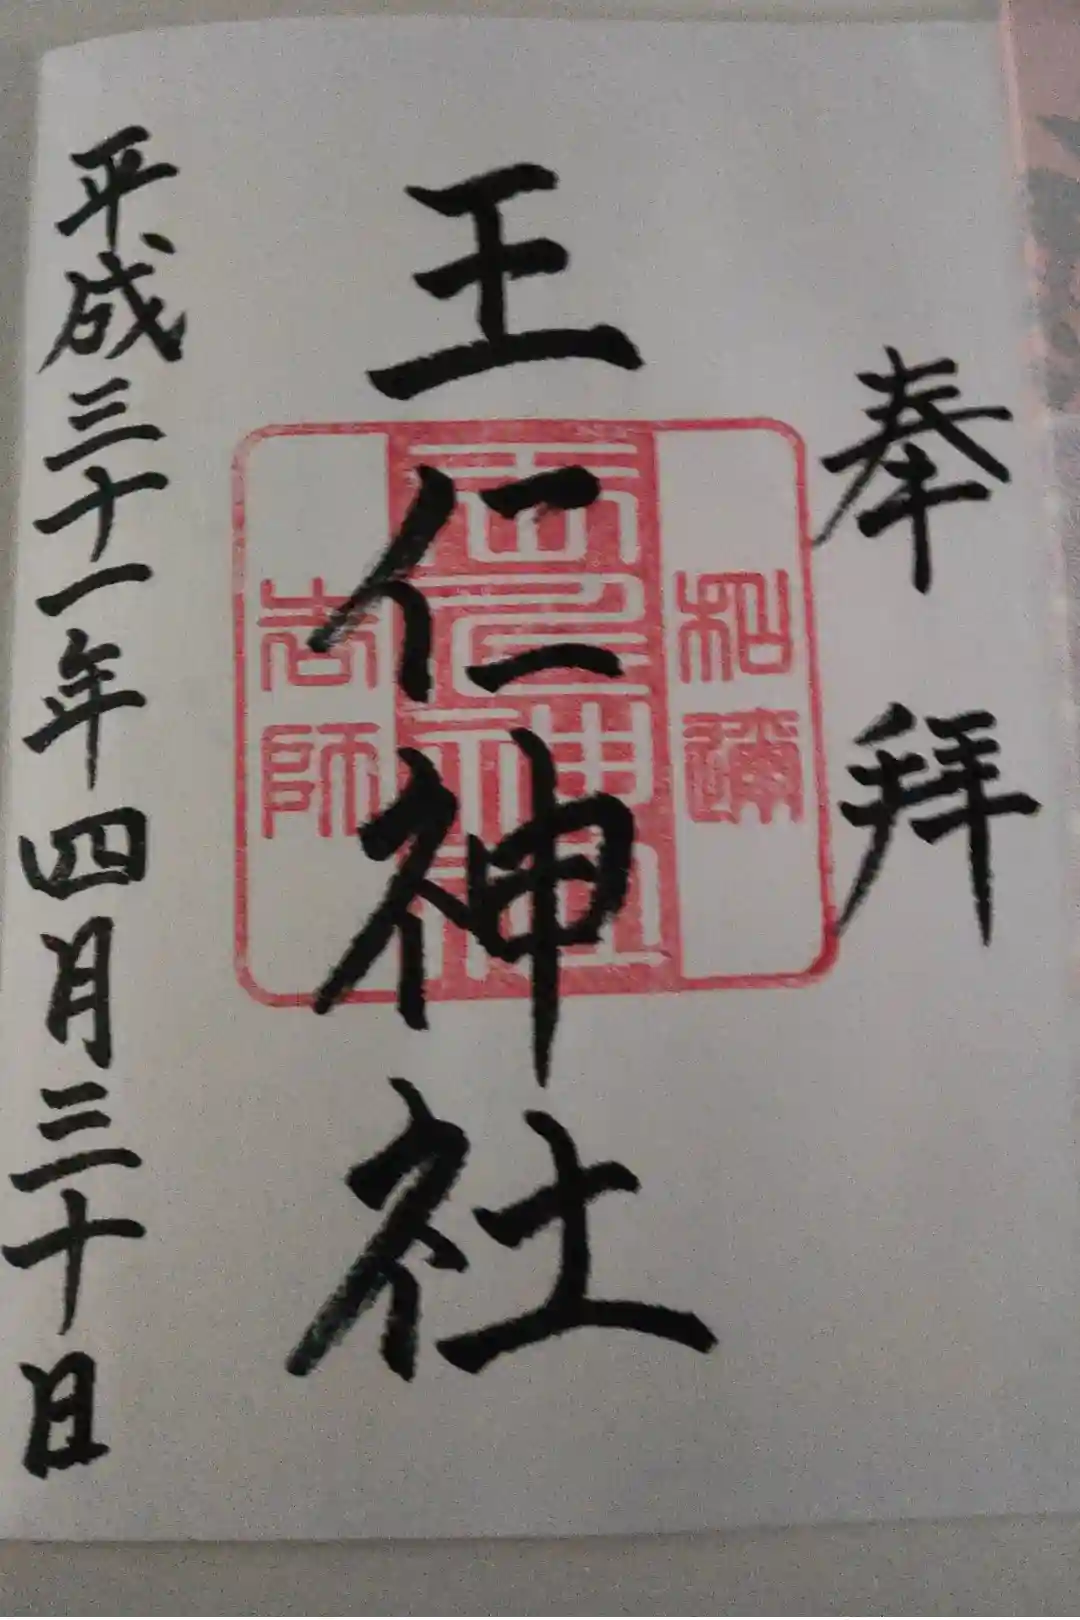 奉拝
和邇
王仁神社
吉師
平成三十一年四月三十日